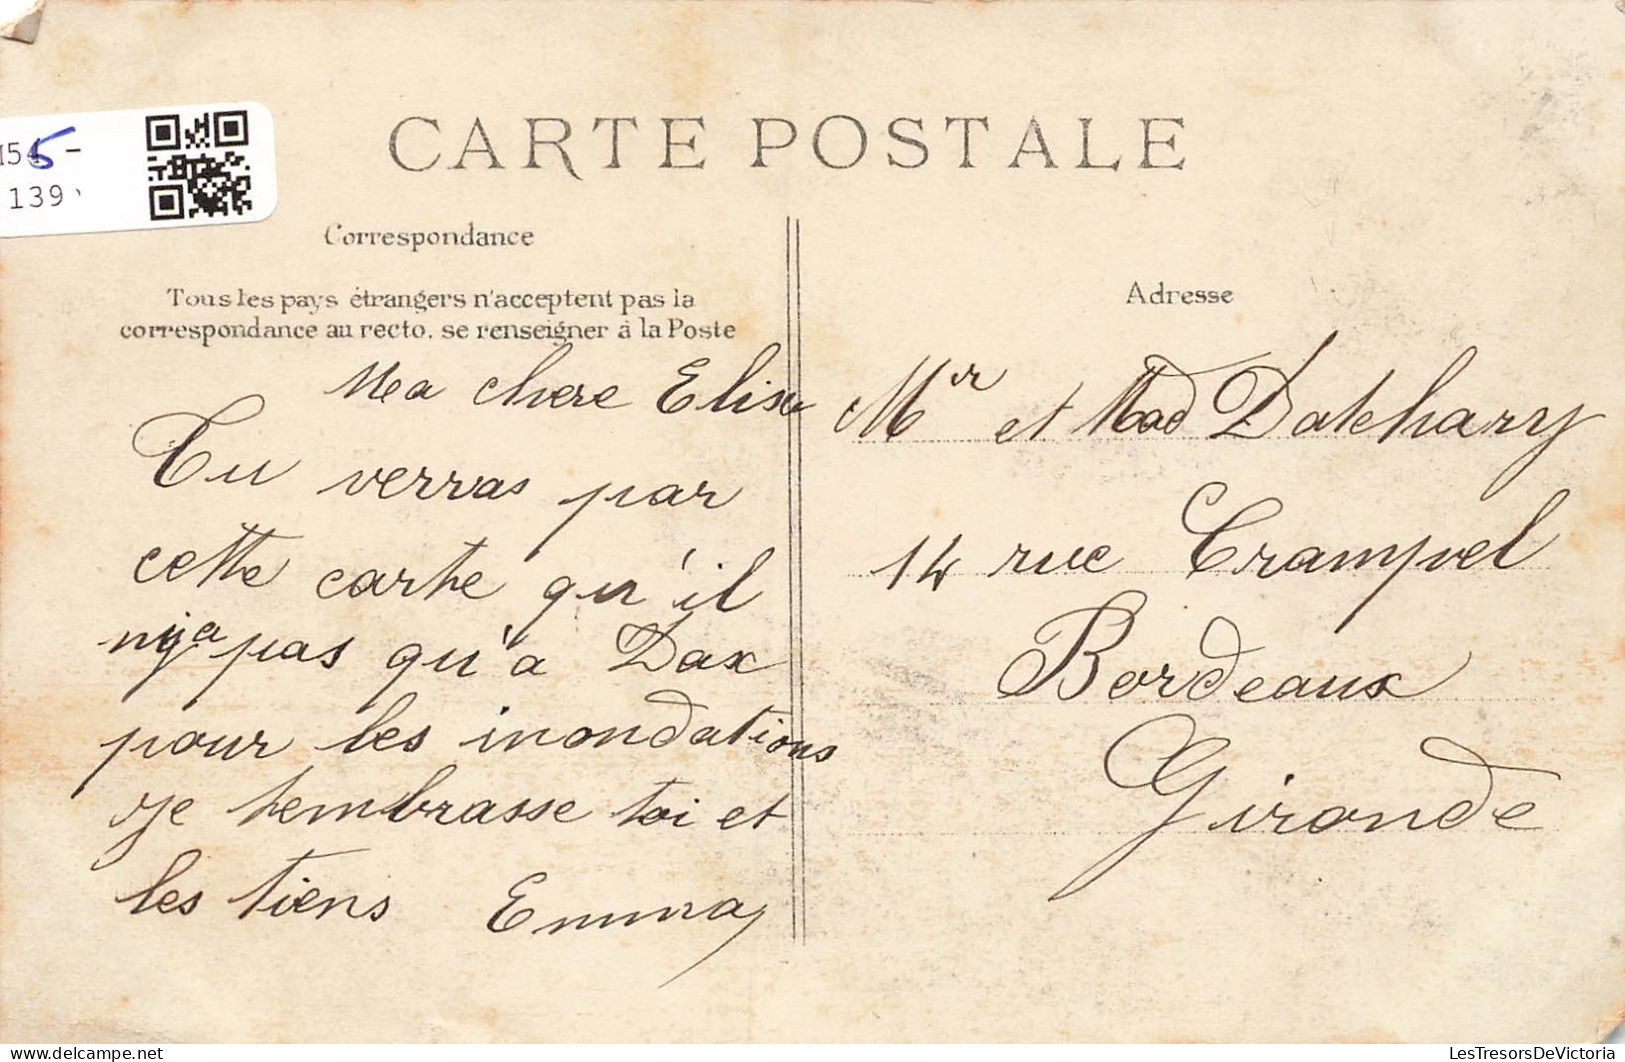 CARTE POSTALE
139
Correspondance
Tous les pays étrangers n'acceptent pas la
correspondance au recto. se renseigner à la Poste
Ma chere Elise
Tu verras par
cette carte qu'il
n'y a pas qu'a Dax
pour les inondations
je tembrasse toi et
les tiens Emma
Adresse
Mr et Mad Datchary
14 rue Crampel
Bordeaux
Gironde
LesTresorsDeVictoria